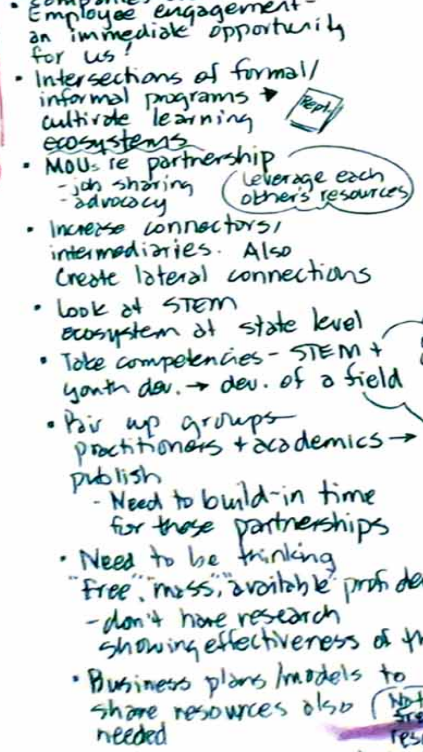 • Employee engagement-
an immediate opportunity
for us!
• Intersections of formal/
informal programs →
cultivate learning
ecosystems
Rept.
• MOUs re partnership
- job sharing
- advocacy
Leverage each
other's resources
• Increase connectors/
intermediaries. Also
Create lateral connections
• Look at STEM
ecosystem at state level
• Take competencies - STEM +
youth dev. → dev. of a field
• Pair up groups
practitioners + academics →
publish
- Need to build-in time
for those partnerships
• Need to be thinking
"free", "mass", "available" prof de
- don't have research
showing effectiveness of th
• Business plans/models to
share resources also
needed